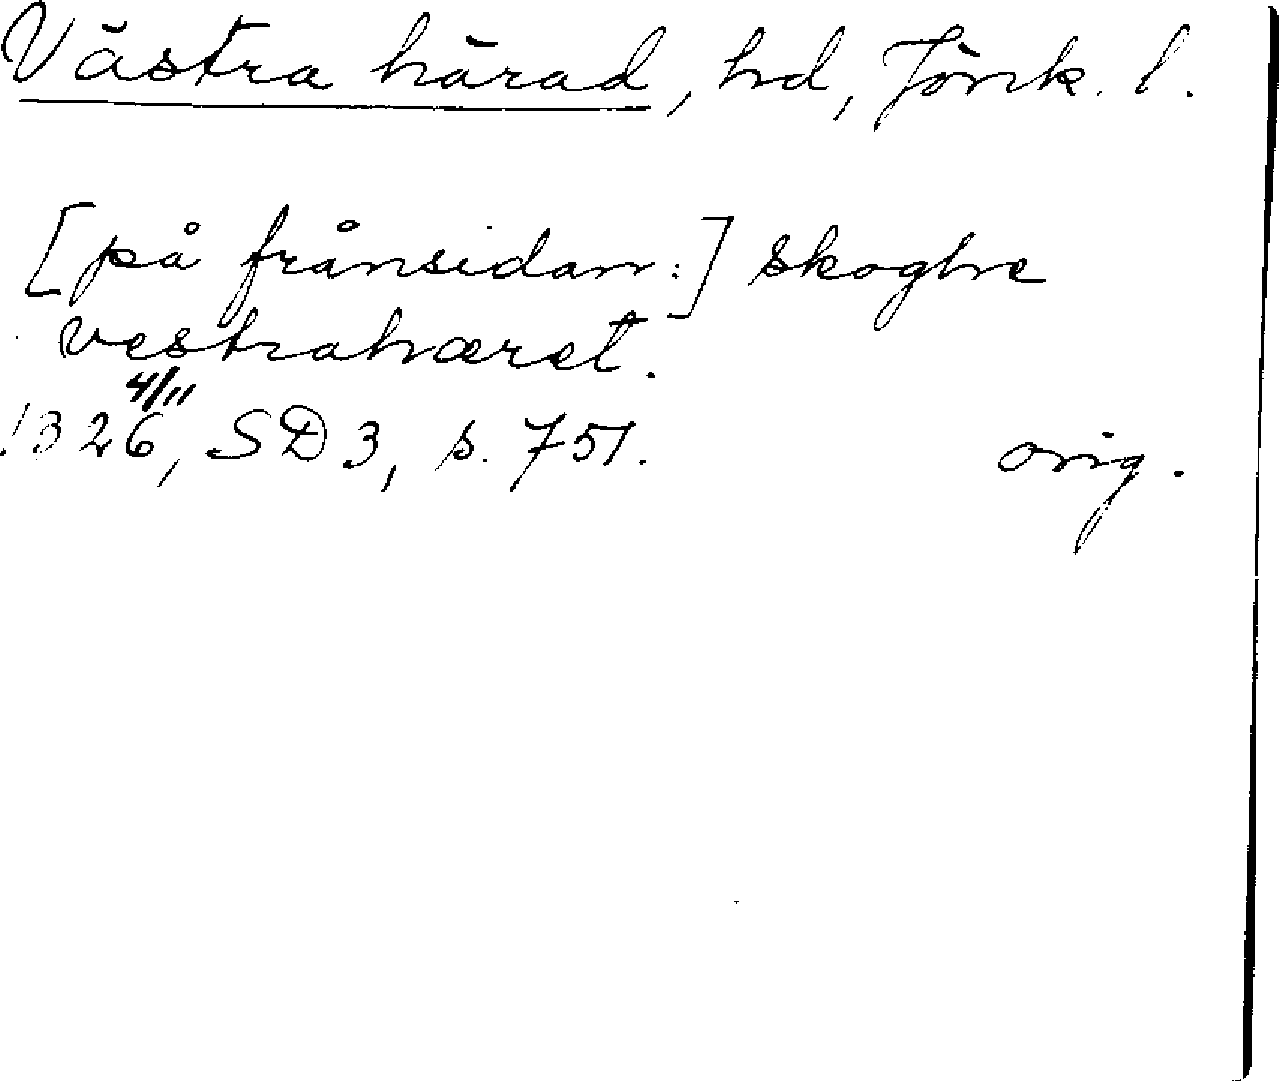 Västra härad, hd, Jönk. l.
[på frånsidan:] skoghe
vestrahæret.
4/11
1326, SD 3, s. 751. orig.